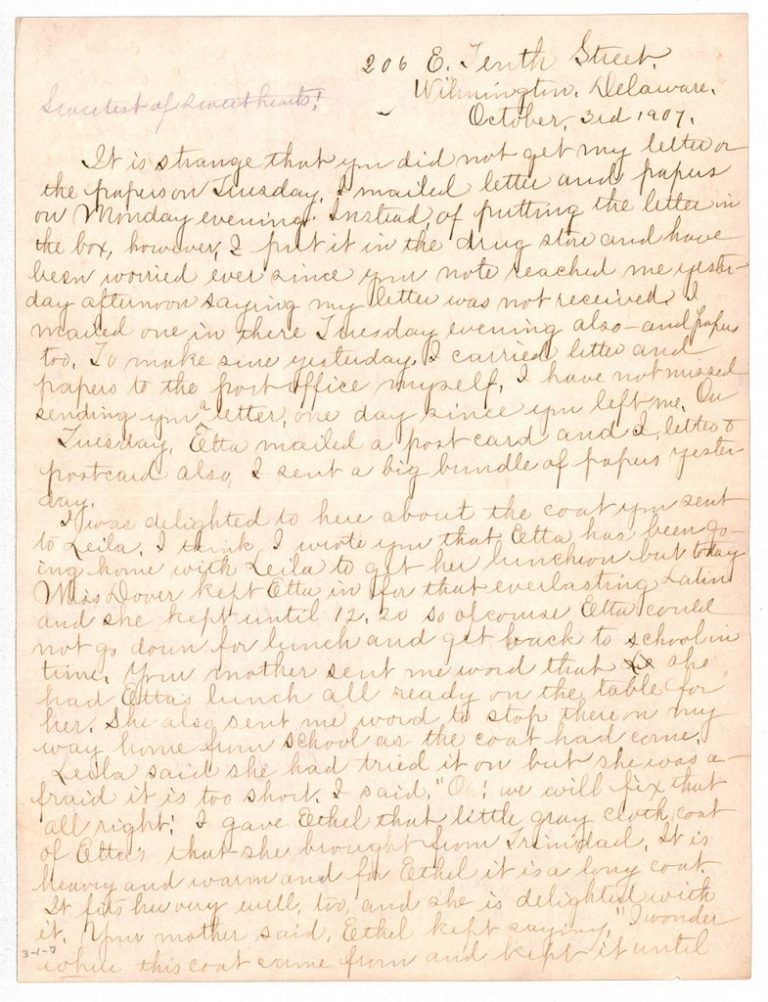 206 E. Tenth Street.
Wilmington, Delaware.
Sweetest of sweethearts!
October, 3rd 1907.
It is strange that you did not get my letter or
the papers on Tuesday. I mailed letter and papers
on Monday evening. Instead of putting the letter in
the box, however, I put it in the drug store and have
been worried ever since your note reached me yester-
day afternoon saying my letter was not received. I
mailed one in there Tuesday evening also - and papers
too. To make sure yesterday, I carried letter and
papers to the post office myself. I have not missed
sending you a letter, one day since you left me. On
Tuesday, Etta mailed a post card and I, letter &
postcard also, I sent a big bundle of papers yester-
day.
I was delighted to here about the coat you sent
to Leila. I think I wrote you that Etta has been go-
ing home with Leila to get her luncheon but today
Miss Dover kept Etta in for that everlasting Latin
and she kept until 12.20 so of course Etta could
not go down for lunch and get back to school in
time. Your mother sent me word that she
had Etta's lunch all ready on the table for
her. She also sent me word to stop there on my
way home from school as the coat had come.
Leila said she had tried it on but she was a-
fraid it is too short. I said, "Oh! we will fix that
all right! I gave Ethel that little gray cloth coat
of Etta's that she brought from Trinidad. It is
heavy and warm and for Ethel it is a long coat.
It fits her very well, too, and she is delighted with
it. Your mother said, Ethel kept saying, "I wonder
where this coat came from and kept it until
3-1-3